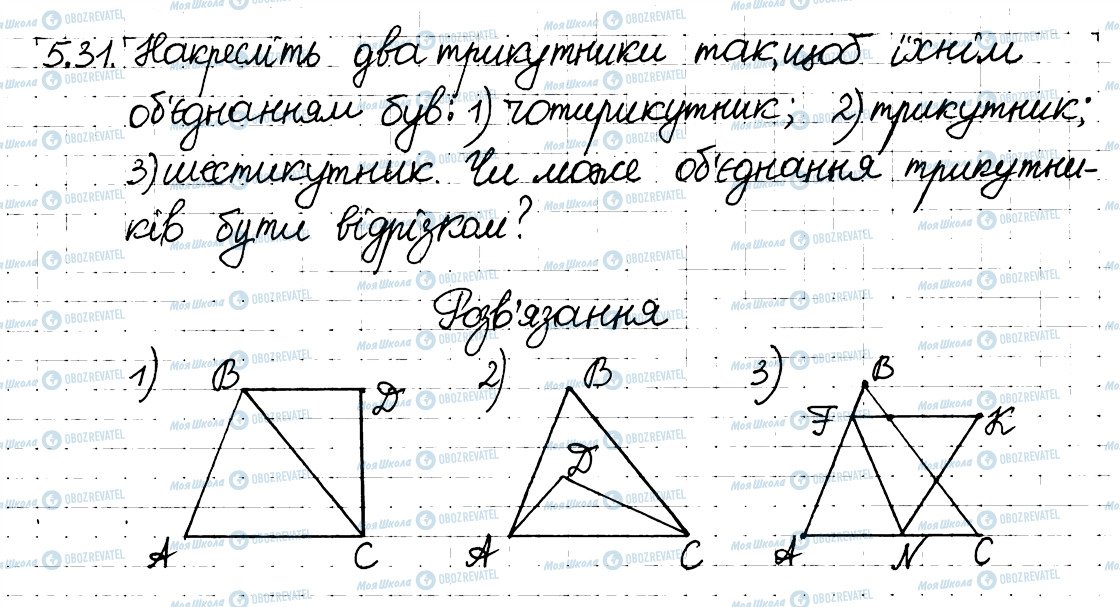 5.31. Накресліть два трикутники так, щоб їхнім
об'єднанням був: 1) чотирикутник; 2) трикутник;
3) шестикутник. Чи може об'єднання трикутни-
ків бути відрізком?
Розв'язання
1) B D A C
2) B D A C
3) B F K A N C